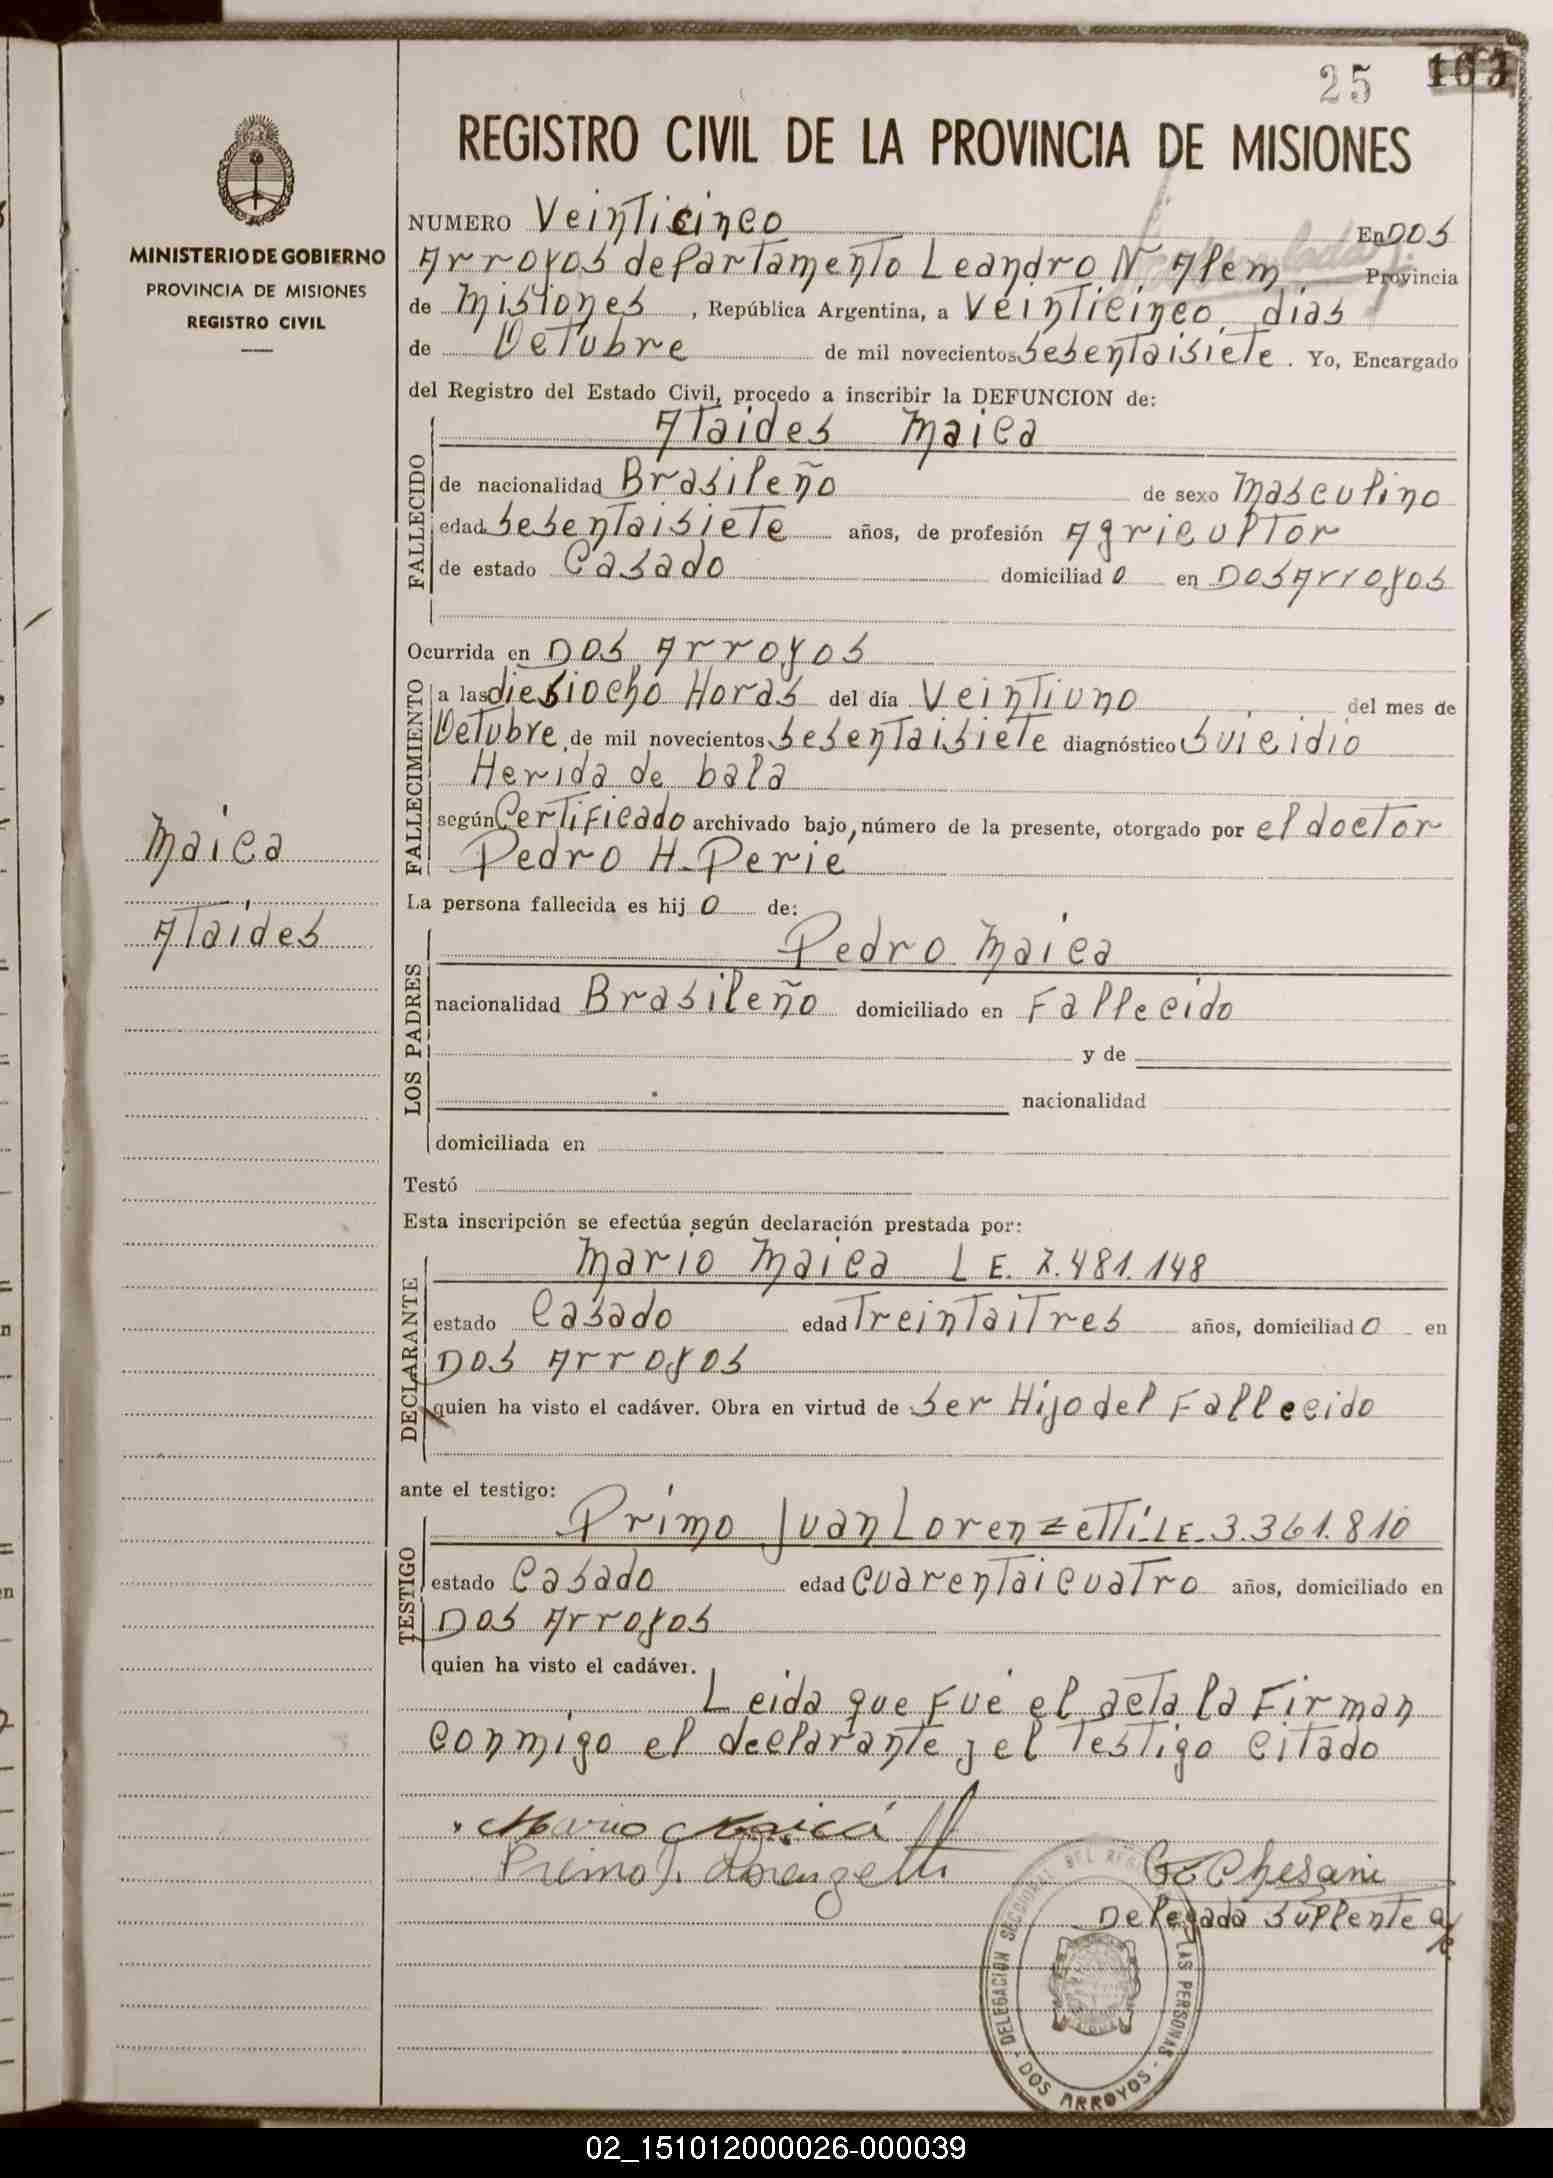 25 163
REGISTRO CIVIL DE LA PROVINCIA DE MISIONES
MINISTERIO DE GOBIERNO
PROVINCIA DE MISIONES
REGISTRO CIVIL
NUMERO Veinticinco En Dos
Arroyos departamento Leandro N. Alem Provincia
de Misiones, República Argentina, a Veinticinco días
de Octubre de mil novecientos Sesentaisiete. Yo, Encargado
del Registro del Estado Civil, procedo a inscribir la DEFUNCION de:
FALLECIDO
Ataides Maica
de nacionalidad Brasileño de sexo Masculino
edad Sesentaisiete años, de profesión Agricultor
de estado Casado domiciliado en Dos Arroyos
Ocurrida en Dos Arroyos
FALLECIMIENTO
a las diesiocho Horas del día Veintiuno del mes de
Octubre de mil novecientos Sesentaisiete diagnóstico Suicidio
Herida de bala
según Certificado archivado bajo, número de la presente, otorgado por el doctor
Pedro H. Perie
Maica
Ataides
La persona fallecida es hijo de:
LOS PADRES
Pedro Maica
nacionalidad Brasileño domiciliado en Fallecido
y de
nacionalidad
domiciliada en
Testó
Esta inscripción se efectúa según declaración prestada por:
DECLARANTE
Mario Maica L E. 7.481.148
estado Casado edad Treintaitres años, domiciliado en
Dos Arroyos
quien ha visto el cadáver. Obra en virtud de Ser Hijo del Fallecido
ante el testigo:
TESTIGO
Primo Juan Lorenzetti LE. 3.361.810
estado Casado edad Cuarentaicuatro años, domiciliado en
Dos Arroyos
quien ha visto el cadáver.
Leida que Fué el acta la Firman
conmigo el declarante y el Testigo Citado
Mario Maicá
Primo J. Lorenzetti
G. Chesani
Delegada Suplente a/c
DELEGACION SECCIONAL DEL REGISTRO DE LAS PERSONAS - DOS ARROYOS -
02_151012000026-000039